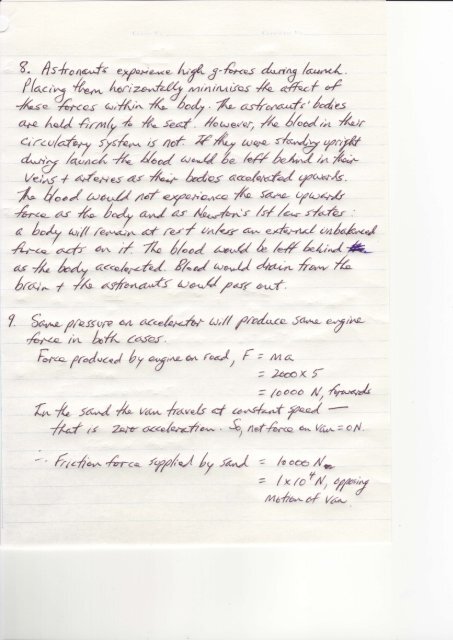 8. Astronauts experience high g-forces during launch.
Placing them horizontally minimises the affect of
these forces within the body. The astronauts' bodies
are held firmly to the seat. However, the blood in their
circulatory system is not. If they were standing upright
during launch the blood would be left behind in their
veins + arteries as their bodies accelerated upwards.
The blood would not experience the same upwards
force as the body and as Newton's 1st law states :
a body will remain at rest unless an external unbalanced
force acts on it. The blood would be left behind
as the body accelerated. Blood would drain from the
brain + the astronauts would pass out.
9. Same pressure on accelerator will produce same engine
force in both cases.
Force produced by engine on road, F = ma
= 2000 x 5
= 10000 N, forwards
In the sand the van travels at constant speed —
that is zero acceleration. So, net force on van = 0 N.
∴ Friction force supplied by sand = 10000 N
= 1 x 10⁴ N, opposing
motion of van.